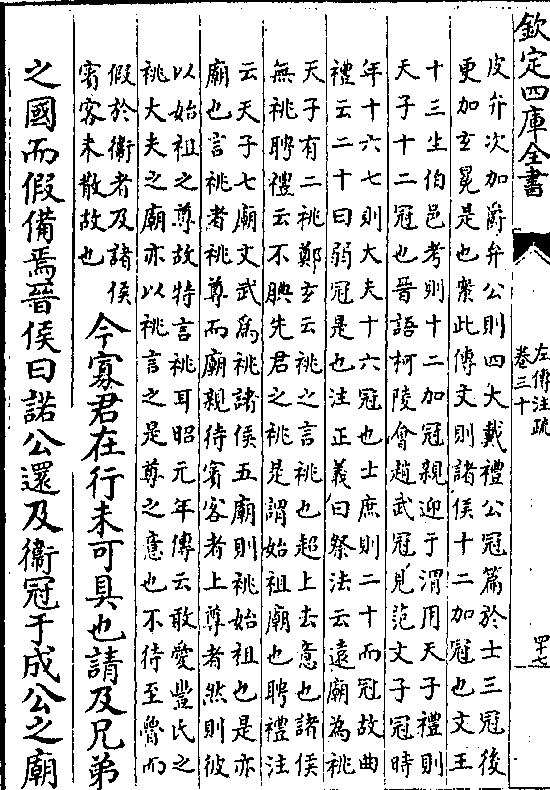 欽定四庫全書
左傳注疏
卷三十
罕七
皮弁次加爵弁公則四大戴禮公冠篇於士三冠後
更加玄冕是也案此傳文則諸侯十二加冠也文王
十三生伯邑考則十二加冠親迎于渭用天子禮則
天子十二冠也晉語柯陵會趙武冠見范文子冠時
年十六七則大夫十六冠也士庶則二十而冠故曲
禮云二十曰弱冠是也注正義曰祭法云遠廟為祧
天子有二祧鄭玄云祧之言祧也超上去意也諸侯
無祧聘禮云不腆先君之祧是謂始祖廟也聘禮注
云天子七廟文武為祧諸侯五廟則祧始祖也是亦
廟也言祧者祧尊而廟親待賓客者上尊者然則彼
以始祖之尊故特言祧耳昭元年傳云敢愛豐氏之
祧大夫之廟亦以祧言之是尊之意也不待至魯而
假於衛者及諸侯
賓客未散故也
今寡君在行未可具也請及兄弟
之國而假備焉晉侯曰諾公還及衛冠于成公之廟